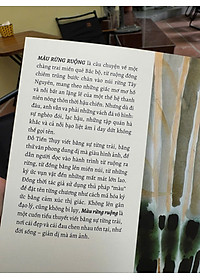 MÁU RỪNG RUỘNG là câu chuyện về một
chàng trai miền quê Bắc bộ, từ ruộng đồng
chiêm trũng bước chân vào núi rừng Tây
Nguyên, mang theo những giấc mơ mơ hồ
và nỗi bất an lặng lẽ của một thế hệ thanh
niên nông thôn thời hậu chiến. Nhưng dù đi
đâu, anh vẫn va phải những vách đá vô hình:
sự nghèo đói, lạc hậu, những tập quán hà
khắc và cả nỗi bạo liệt âm ỉ day dứt không
thể gọi tên.
Đỗ Tiến Thụy viết bằng sự từng trải, bằng
thứ văn phong dung dị mà giàu hình ảnh, để
dẫn người đọc vào hành trình từ ruộng ra
rừng, từ đồng bằng lên miền núi, từ những
ký ức vụn vặt đến những mất mát lớn lao.
Đồng thời tác giả sử dụng thủ pháp "màu"
để đặt tên từng chương như cách mã hóa ký
ức bằng cảm xúc thị giác. Không lên gân
đạo lý, cũng không bi lụy, Màu rừng ruộng là
một cuốn tiểu thuyết viết bằng sự từng trải,
nơi cái đẹp và cái đau chen nhau tồn tại, như
đời sống – giản dị mà ám ảnh.